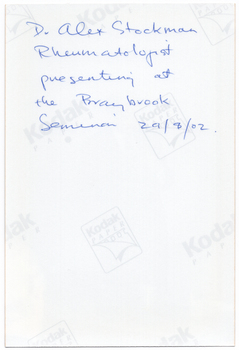 Dr Alex Stockman
Rheumatologist
presenting at
the Braybrook
Seminar 29/8/02.
Kodak
Kodak
Kodak
Kodak